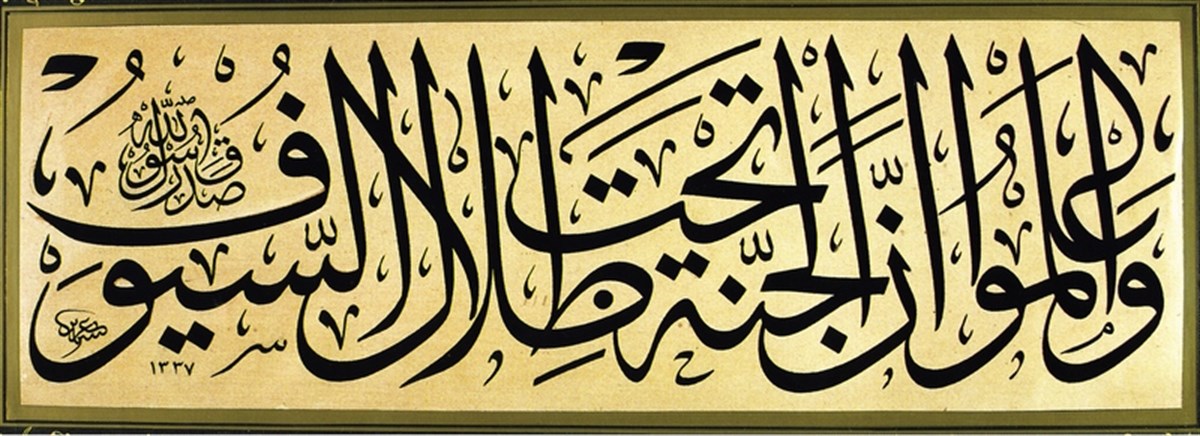 وَاعْلَمُوا اَنَّ الْجَنَّةَ تَحْتَ ظِلَالِ السُّيُوفِ
صدق رسول الله
١٣٣٧